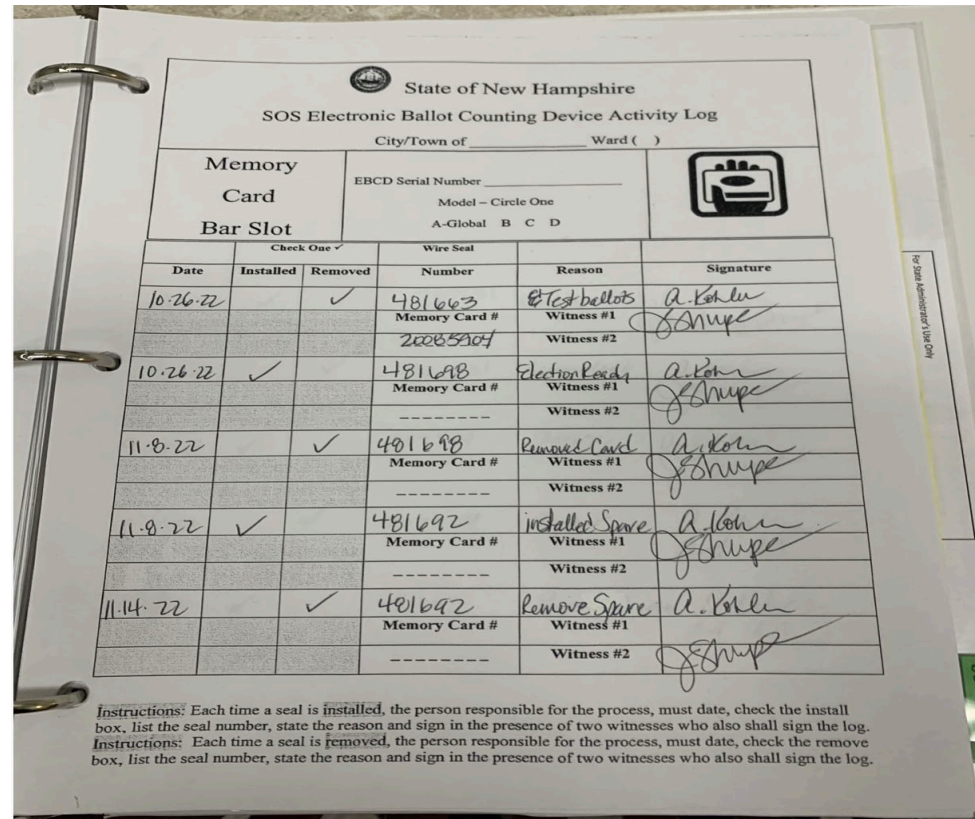 State of New Hampshire
SOS Electronic Ballot Counting Device Activity Log
City/Town of ____________ Ward ( )
Memory
Card
Bar Slot
EBCD Serial Number ____________
Model – Circle One
A-Global B C D
Check One ✓ Wire Seal
Date Installed Removed Number Reason Signature
10·26·22 ✓ 481663 Test ballots A. Kohler
Memory Card # Witness #1 J Shupe
Witness #2
10·26·22 ✓ 481698 Election Ready
Memory Card # Witness #1 J Shupe
-------- Witness #2
11·8·22 ✓ 481698 Removed Card
Memory Card # Witness #1 J Shupe
-------- Witness #2
11·8·22 ✓ 481692 installed Spare
Memory Card # Witness #1 J Shupe
-------- Witness #2
11·14·22 ✓ 481692 Remove Spare A. Kohler
Memory Card # Witness #1
-------- Witness #2 J Shupe
Instructions: Each time a seal is installed, the person responsible for the process, must date, check the install
box, list the seal number, state the reason and sign in the presence of two witnesses who also shall sign the log.
Instructions: Each time a seal is removed, the person responsible for the process, must date, check the remove
box, list the seal number, state the reason and sign in the presence of two witnesses who also shall sign the log.
For State Administrator's Use Only